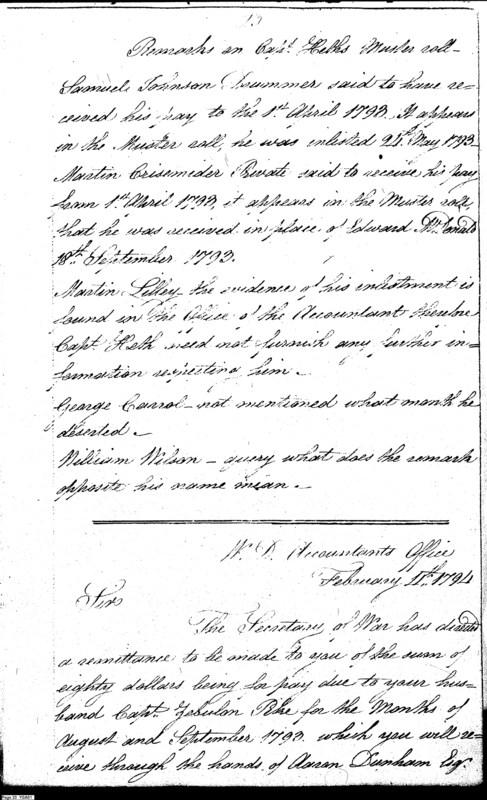 Remarks on Capt. Heths Muster roll-
Samuel Johnson Drummer said to have re=
ceived his pay to the 1st April 1793. It appears
in the Muster roll, he was inlisted 24th May 1793-
Martin Private said to receive his pay
from 1st April 1793 it appears in the Muster roll,
that he was received in place of Edward McDonald
18th September 1793.
Martin Lilley the evidence of his inlistment is
found in the Office of the Accountant therefore
Capt. Heth need not furnish any further in=
formation respecting him.-
George Carrol- not mentioned what month he
deserted.-
William Wilson - query what does the remark
opposite his name mean.-
W. D. Accountants Office
February 11th 1794
Sir
The Secretary of War has directed
a remittance to be made to you of the sum of
eighty dollars being for pay due to your hus=
band Capt. Zebulon Pike for the Months of
August and September 1793. which you will re=
ceive through the hands of Aaron Dunham Esq.